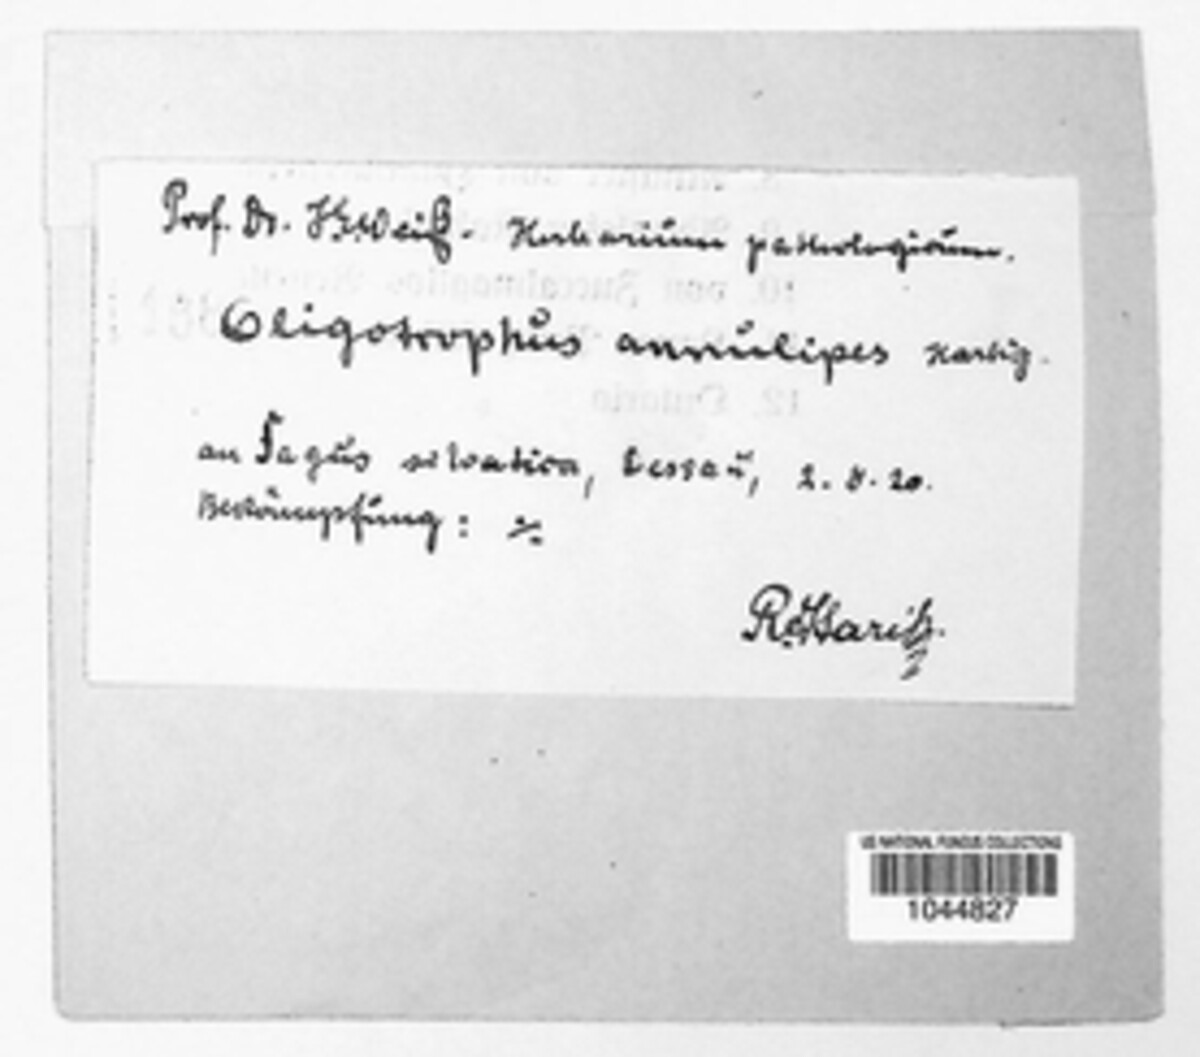 Prof. Dr. H. Weiß. Herbarium pathologicum.
Oligotrophus annulipes Hartig.
an Fagus silvatica, Dessau, 2. 8. 20.
Bekämpfung: %
R. Harig.
US NATIONAL FUNGUS COLLECTIONS
1044827
10. von Zuccalmaglios Renette
12. Ontario